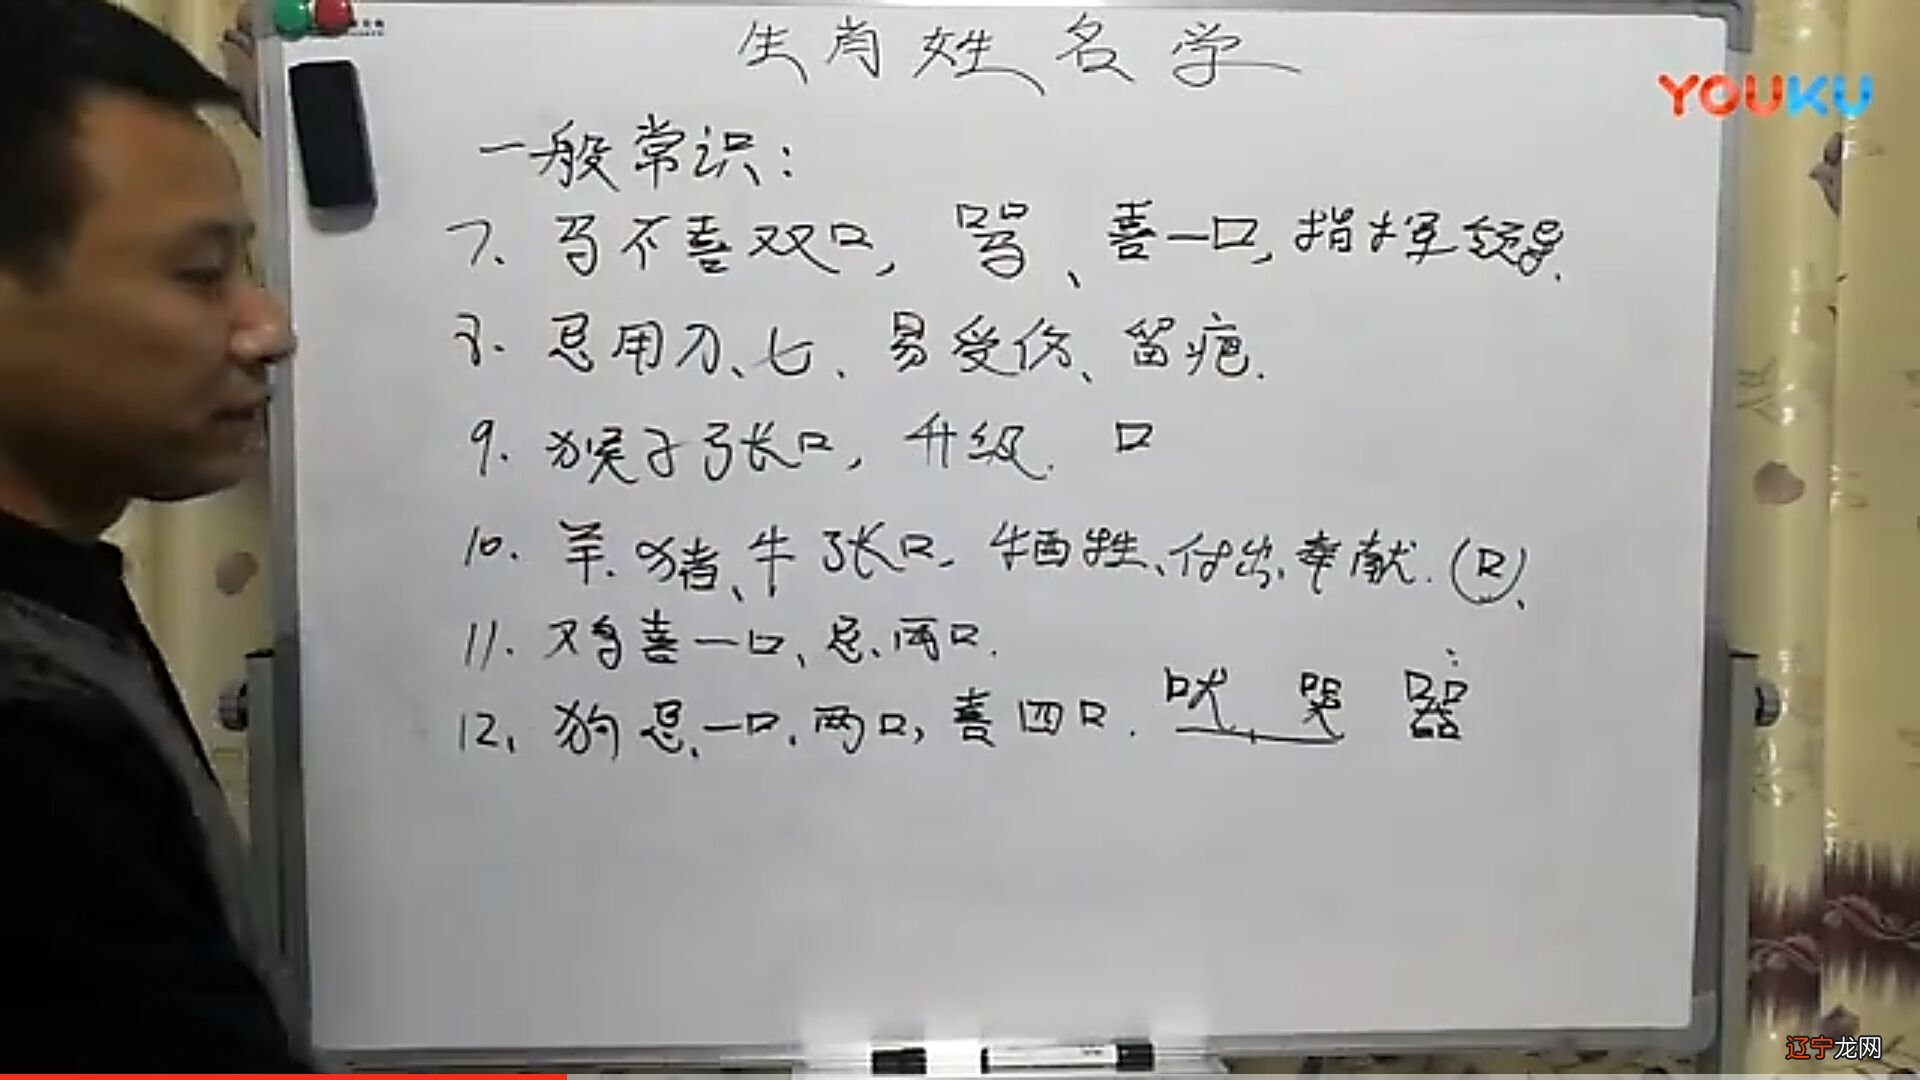 生肖姓名学
YOUKU
一般常识：
7. 马不喜双口, 骂、喜一口, 指挥领导.
8. 忌用刀、七、易受伤、留疤.
9. 猴子弓长口, 升级. 口
10. 羊.猪、牛 张口. 牺牲、付出、奉献. (口)、
11. 鸡喜一口、忌、两口.
12. 狗忌、一口、两口, 喜四口. 吠 哭 器
辽宁龙网